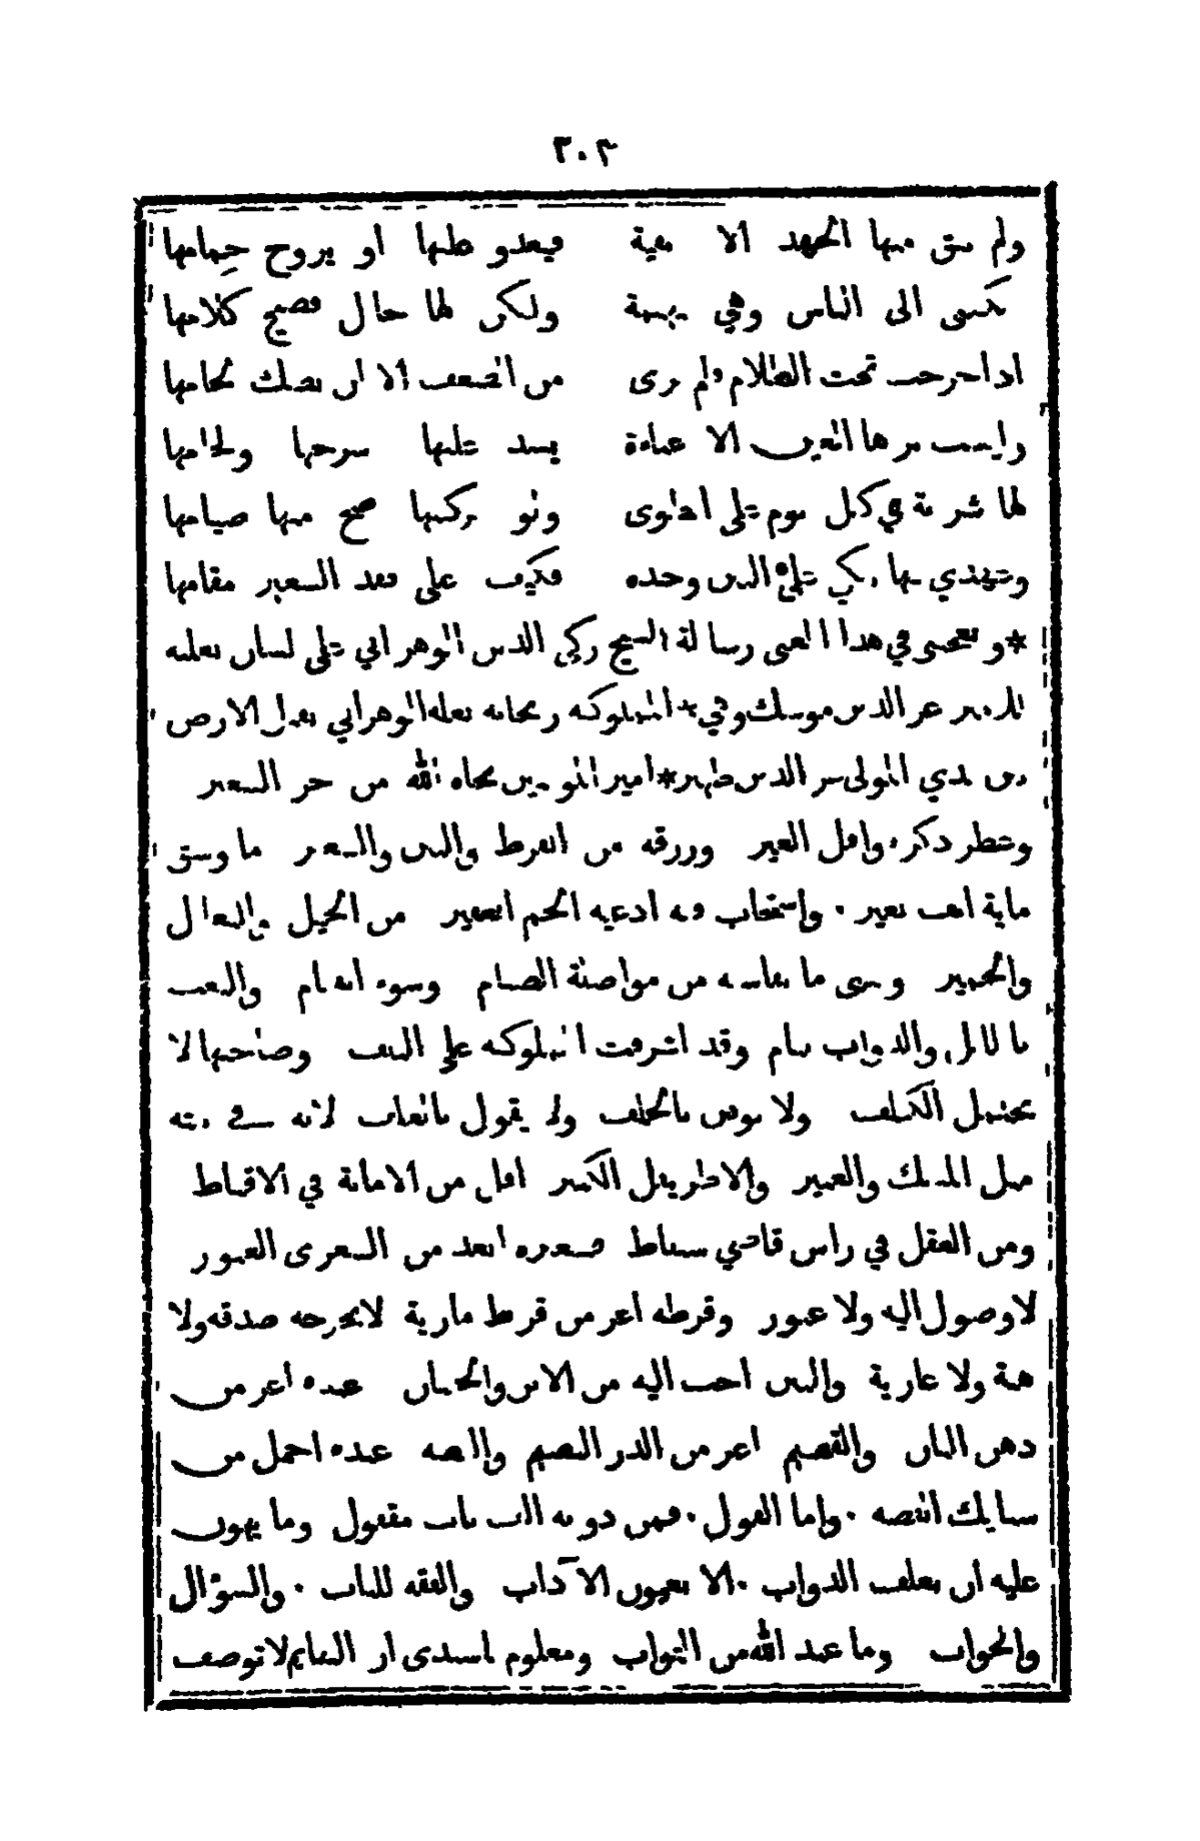 ٣٠٣
ولم يبق منها الجهد الا بقية فيغدو عليها او يروح حِمامها
شكتني الى الناس وهي بهيمة ولكن لها حال فصيح كلامها
اذا خرجت تحت الظلام ولم ترى من الضعف الا ان يصك لجامها
وليست تراها العين الا عباءة يشد عليها سرجها ولجامها
لها شربة في كل يوم على الطوى ولو تركتها صح منها صيامها
وعهدي بها تبكي على التبن وحده فكيف على فقد الشعير مقامها
*و يعجبني في هذا المعنى رسالة الشيخ ركن الدين الوهراني على لسان بغلته
للامير عز الدين موسك وهي* المملوكة ريحانه بغلة الوهراني تقبل الارض
بين يدي المولى عز الدين ظهير* امير المؤمنين نجاه الله من حر السعير
وعطر بذكره قوافل العير ورزقه من القرط والتبن والشعير ما وسق
ماية الف بعير . واستجاب فيه ادعية الجم الغفير من الخيل والبغال
والحمير وتنهي ما تقاسيه من مواصلة الصيام وسوء القيام والتعب
بالليل والدواب نيام وقد اشرفت المملوكة على التلف وصاحبها لا
يحتمل الكلف ولا يوقن بالخلف ولا يقول بالعلف لانه في بيته
مثل المسك والعبير والاطريفل الكبير اقل من الامانة في الاقباط
ومن العقل في راس قاضي سنباط فشعيره ابعد من الشعرى العبور
لا وصول اليه ولا عبور وقرطه اعز من قرط مارية لا يخرجه صدقة ولا
هبة ولا عارية والتبن احب اليه من الابن والجلبان عنده اعز من
دهن البان والقضيم اعز من الدر النظيم والفصة عنده اجمل من
سبايك الفضه . واما الفول . فمن دونه الف باب مقفول وما يهون
عليه ان يعلف الدواب . الا بعيون الآداب والفقه اللباب . والسؤال
والجواب وما عند الله من الثواب ومعلوم ياسيدي ان البهايم لا توصف